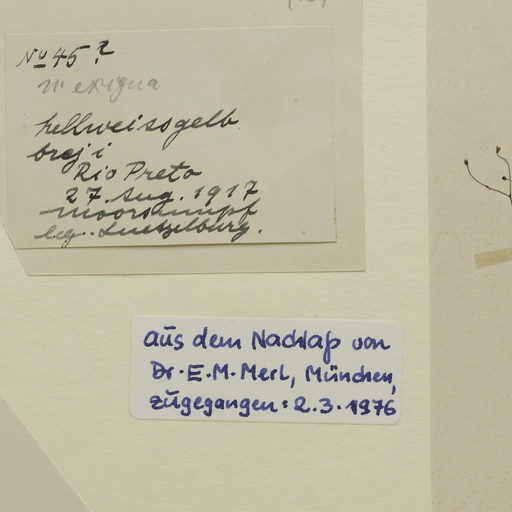 No 45.2
exigua
hellweissgelb
brej i
Rio Preto
27. Aug. 1917
Moorsumpf
leg. Luetzelburg.
aus dem Nachlaß von
Dr. E. M. Merl, München,
zugegangen: 2. 3. 1976